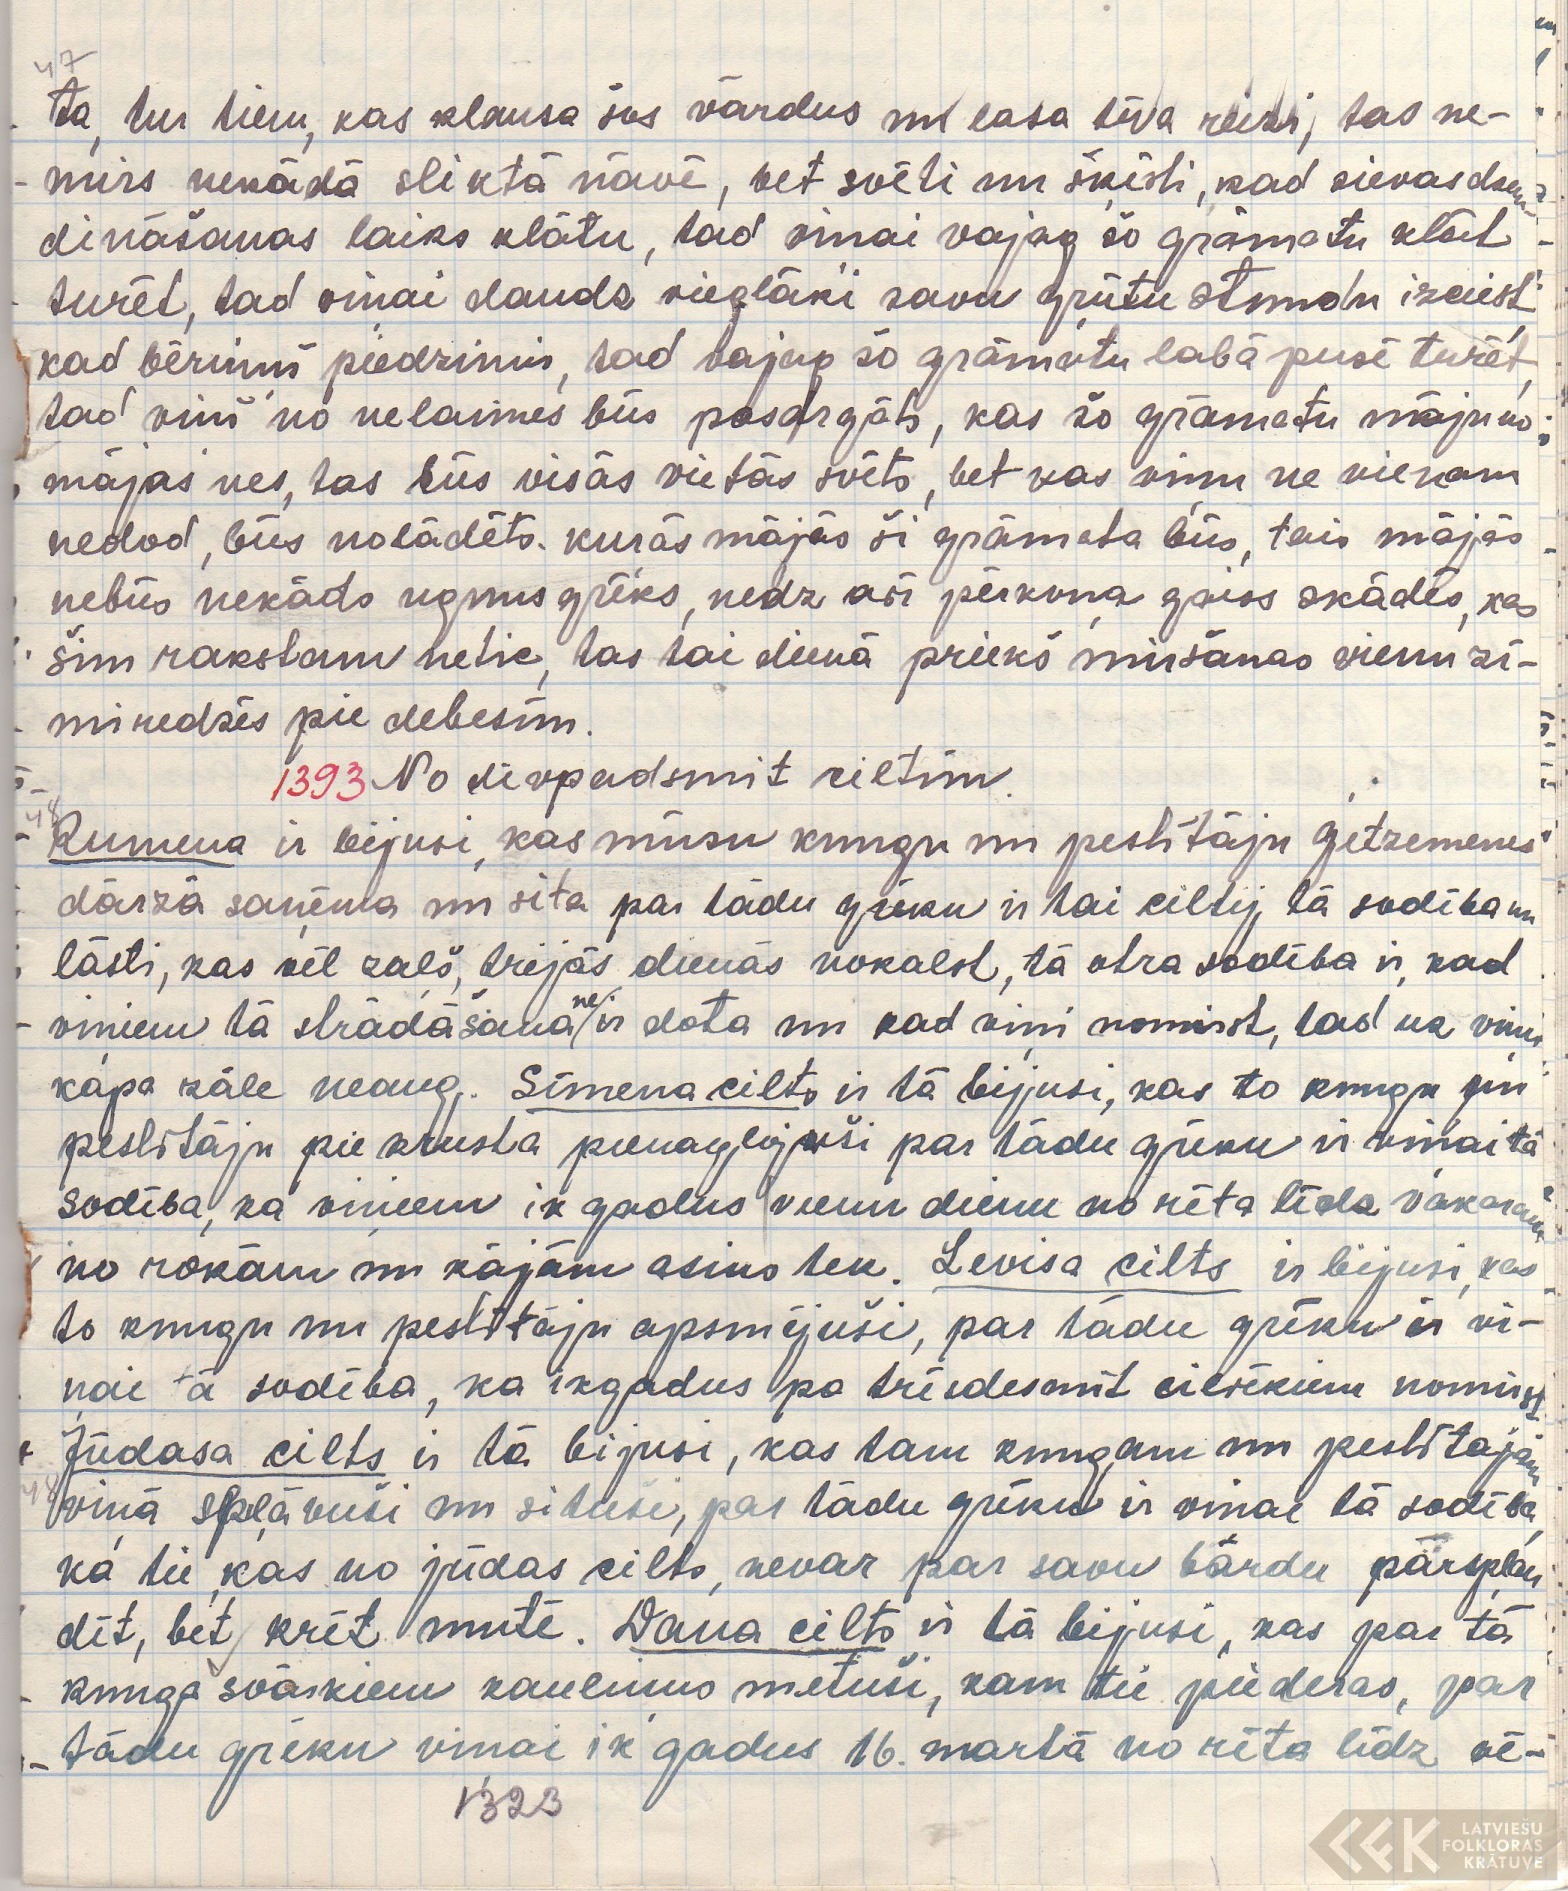 47
ta, tur tiem, kas klausa šos vārdus un lasa tēva reizi, tas ne-
mirs nekādā sliktā nāvē, bet svēti un šķīsti, kad sievas dzem-
dināšanas laiks klātu, tad viņai vajag šo grāmatu klāt
turēt, tad viņai daudz vieglāki savu grūtu stundu izciest
kad bērniņš piedzimis, tad vajag šo grāmatu labā pusē turēt,
tad viņš no nelaimes būs pasargāts, kas šo grāmatu māju no
mājas nes, tas būs visās vietās svēts, bet kas viņu ne vienam
nedod, būs nolādēts. kurās mājās šī grāmata būs, tais mājās
nebūs nekāds ugunsgrēks, nedz arī pērkona gaiss skādēs, kas
šim rakstam netic, tas tai dienā priekš miršanas vienu zī-
mi redzēs pie debesīm.
1393 No divpadsmit ciltīm.
48
Rumena ir bijusi, kas mūsu kungu un pestītāju Ģetzemenes
dārzā saņēma un sita par tādu grēku ir tai ciltij tā sodība un
lāsti, kas vēl zaļš, trijās dienās nokalst, tā otra sodība ir, kad
viņiem tā strādāšana ne/ir dota un kad viņi nomirst, tad uz viņu
kapa zāle neaug. Sīmena cilts ir tā bijusi, kas to kungu un
pestītāju pie krusta pienaglojuši par tādu grēku ir viņai tā
sodība, ka viņiem ik gadus vienu dienu no rīta līdz vakaram
no rokām un kājām asins tek. Levisa cilts ir bijusi, kas
to kungu un pestītāju apsmējuši, par tādu grēku ir vi-
ņai tā sodība, ka ikgadus pa trīsdesmit cilvēkiem nomirst
Jūdasa cilts ir tā bijusi, kas tam kungam un pestītājam
48
viņā spļāvuši un situši, par tādu grēku ir viņai tā sodība,
ka tie, kas no jūdas cilts, nevar par savu bārdu pārspļau
dīt, bet krīt mutē. Dana cilts ir tā bijusi, kas par tā
kunga svārkiem kauliņus metuši, kam tie piederas, par
tādu grēku viņai ik gadus 16. martā no rīta līdz vē-
1323
LATVIEŠU
FOLKLORAS
KRĀTUVE